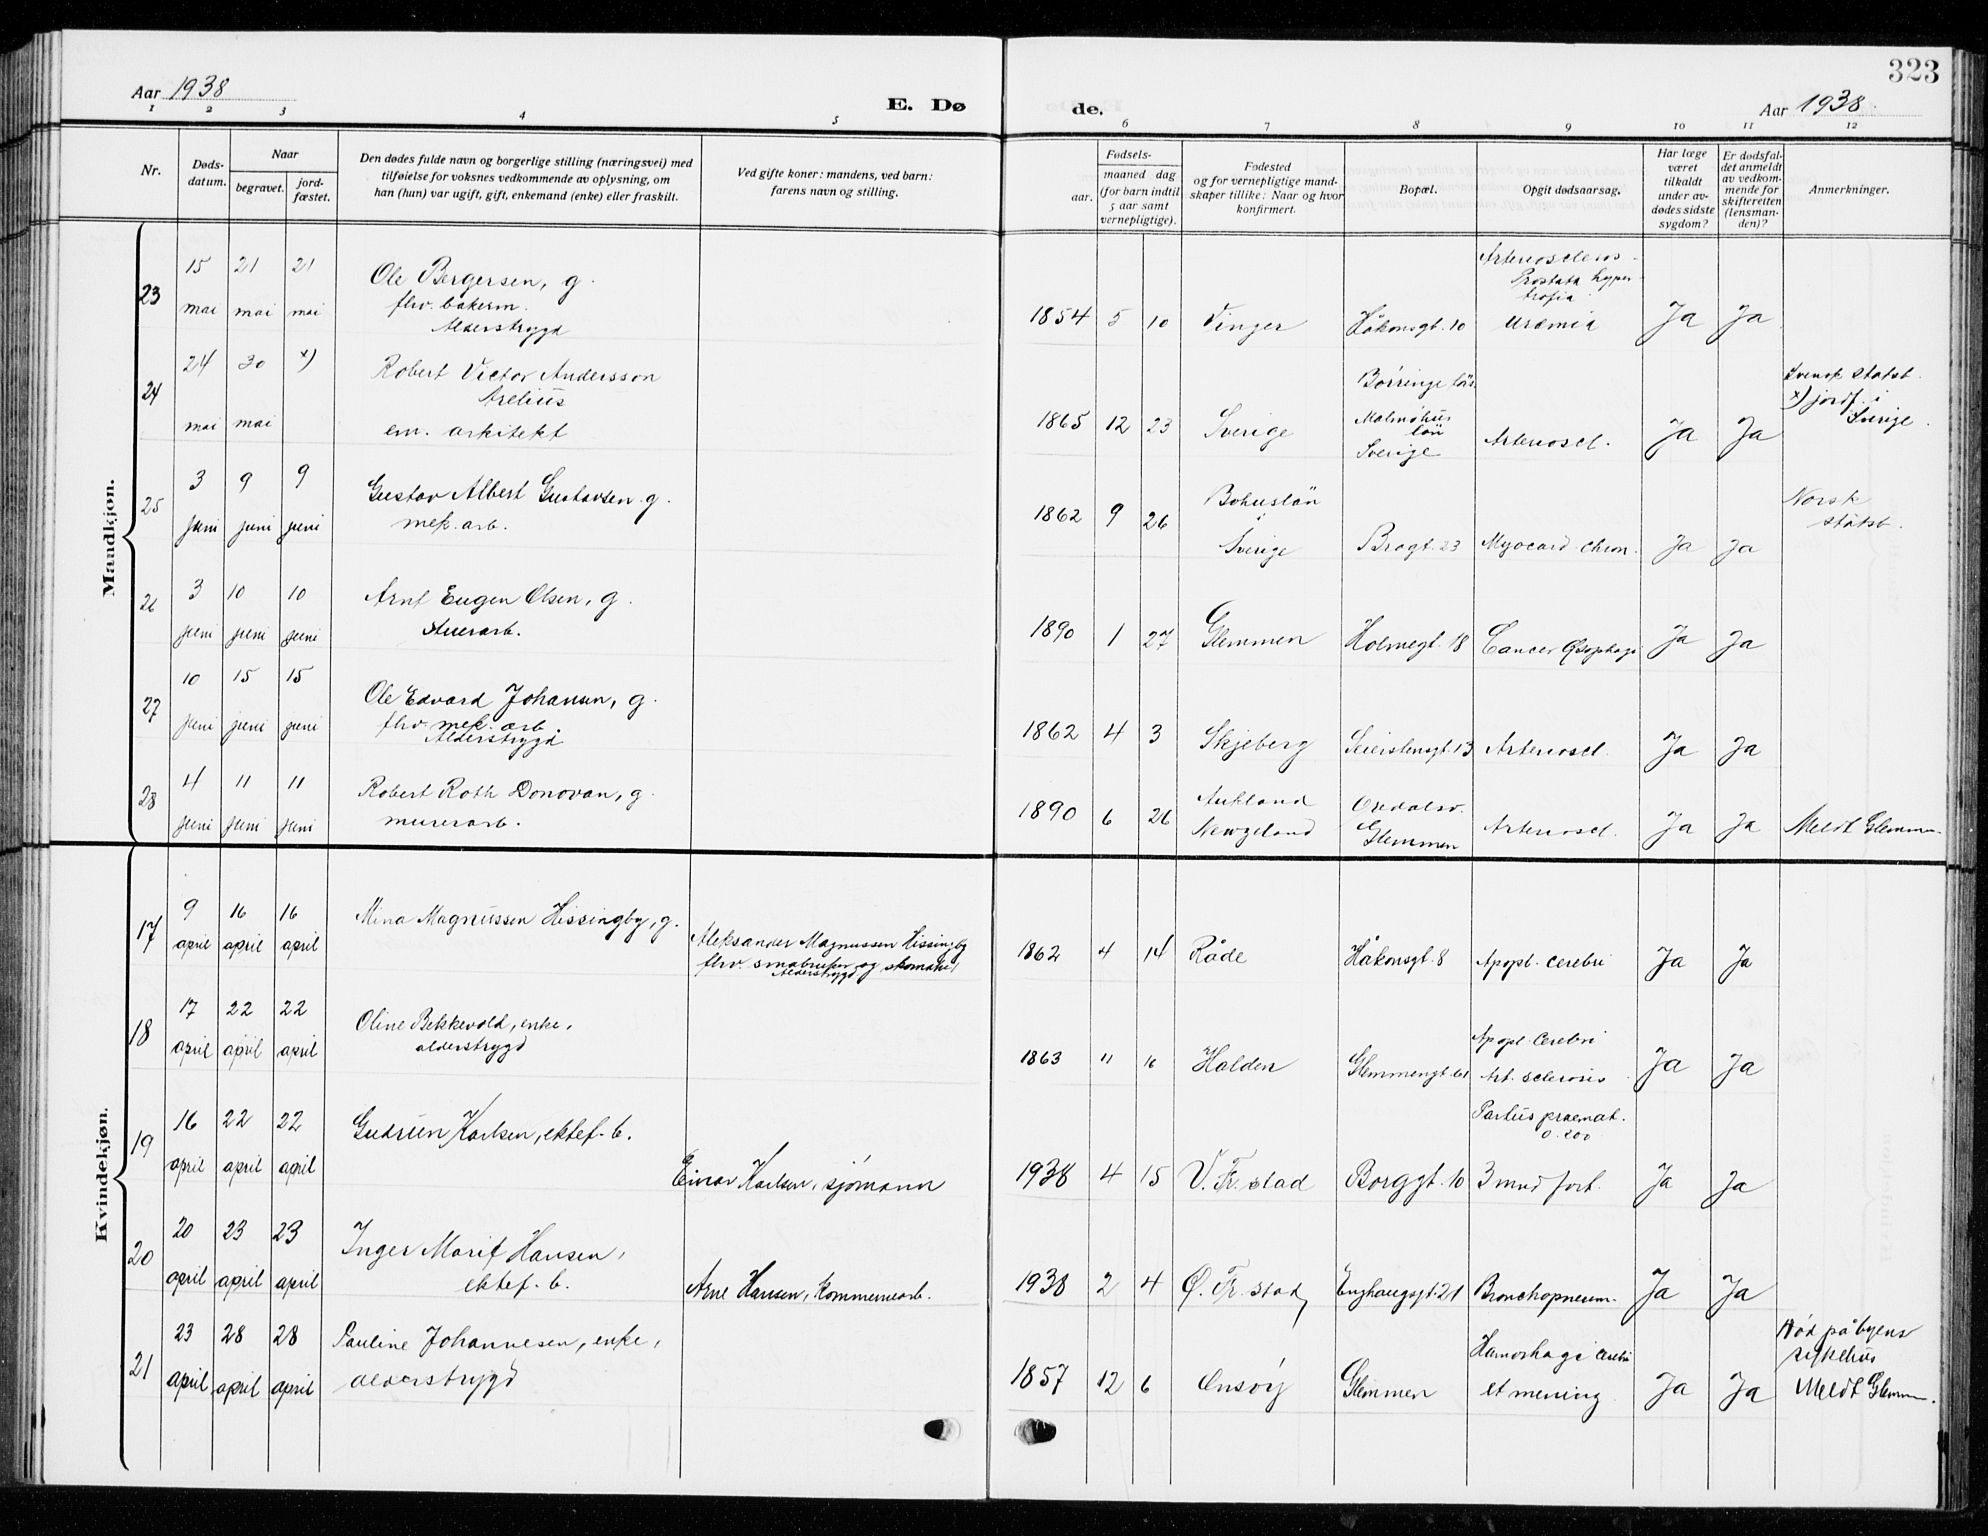 323
Aar 1938
E. Dø
de.
Aar 1938
1 2 3 4 5 6 7 8 9 10 11 12
Nr.
Døds-
datum.
Naar
begravet.
jord-
fæstet.
Den dødes fulde navn og borgerlige stilling (næringsvei) med
tilføielse for voksnes vedkommende av oplysning, om
han (hun) var ugift, gift, enkemand (enke) eller fraskilt.
Ved gifte koner: mandens, ved barn:
farens navn og stilling.
Fødsels-
aar.
maaned dag
(for barn indtil
5 aar samt
vernepligtige).
Fødested
og for vernepligtige mand-
skaper tillike: Naar og hvor
konfirmert.
Bopæl.
Opgit dødsaarsag.
Har læge
været
tilkaldt
under av-
dødes sidste
sygdom?
Er dødsfal-
det anmeldt
av vedkom-
mende for
skifteretten
(lensman-
den)?
Anmerkninger.
Mandkjøn.
23
15 21 21
mai mai mai
Ole Bergersen, g.
fhv. bakerm.
Alderstrygd
1854 5 10 Vinger Håkonsgt. 10
Arterioscleros -
Prostata hyper
trofia
Uræmia
Ja Ja
24
24 30 x)
mai mai
Robert Victor Andersson
Arelius
em. arkitekt
1865 12 23 Sverige
Börringe län
Malmöhus
län
Sverige
Arterioscl.
Ja Ja
Svensk statsb.
x) jordf. i
Sverige.
25
3 9 9
juni juni juni
Gustav Albert Gustavsen. g.
mek. arb.
1862 9 26
Bohuslän
i
Sverige
Bragt. 23 Myocard. chron. Ja Ja
Norsk
statsb.
26
3 10 10
juni juni juni
Arnt Eugen Olsen, g.
stuerarb.
1890 1 27 Glemmen Holmegt. 18 Cancer Øsophagi Ja Ja
27
10 15 15
juni juni juni
Ole Edvard Johansen, g.
fhv. mek. arb.
Alderstrygd
1862 4 3 Skjeberg Seierstensgt. 13 Arterioscl. Ja Ja
28
4 11 11
juni juni juni
Robert Roth Donovan, g.
murerarb.
1890 6 26
Aukland
Newzeland
Oredalsv.
Glemmen
Arterioscl. Ja Ja Meldt Glemm.
Kvindekjøn.
17
9 16 16
april april april
Mina Magnussen Hissingby, g.
Aleksander Magnussen Hissingby
fhv. småbruker og skomaker
Alderstrygd
1862 4 14 Råde Håkonsgt. 8 Apopl. cerebri Ja Ja
18
17 22 22
april april april
Oline Bekkevold, enke,
alderstrygd
1863 11 16 Halden Glemmengt. 61
Apopl. Cerebri
Art. sclerosis
Ja Ja
19
16 22 22
april april april
Gudrun Karlsen, ektef. b.
Einar Karlsen, sjømann
1938 4 15 V. Fr.stad Borggt. 10
Partus præmat.
3 mnd fort.
Ja Ja
20
20 23 23
april april april
Inger Marit Hansen,
ektef. b.
Arne Hansen, kommunearb.
1938 2 4 Ø. Fr.stad Enghaugsgt. 21 Bronchopneum. Ja Ja
21
23 28 28
april april april
Pauline Johannesen, enke,
alderstrygd
1857 12 6 Onsøy Glemmen
Hæmorhagi cerebri
et mening.
Ja Ja
Død på byens
sykehus
Meldt Glemm.